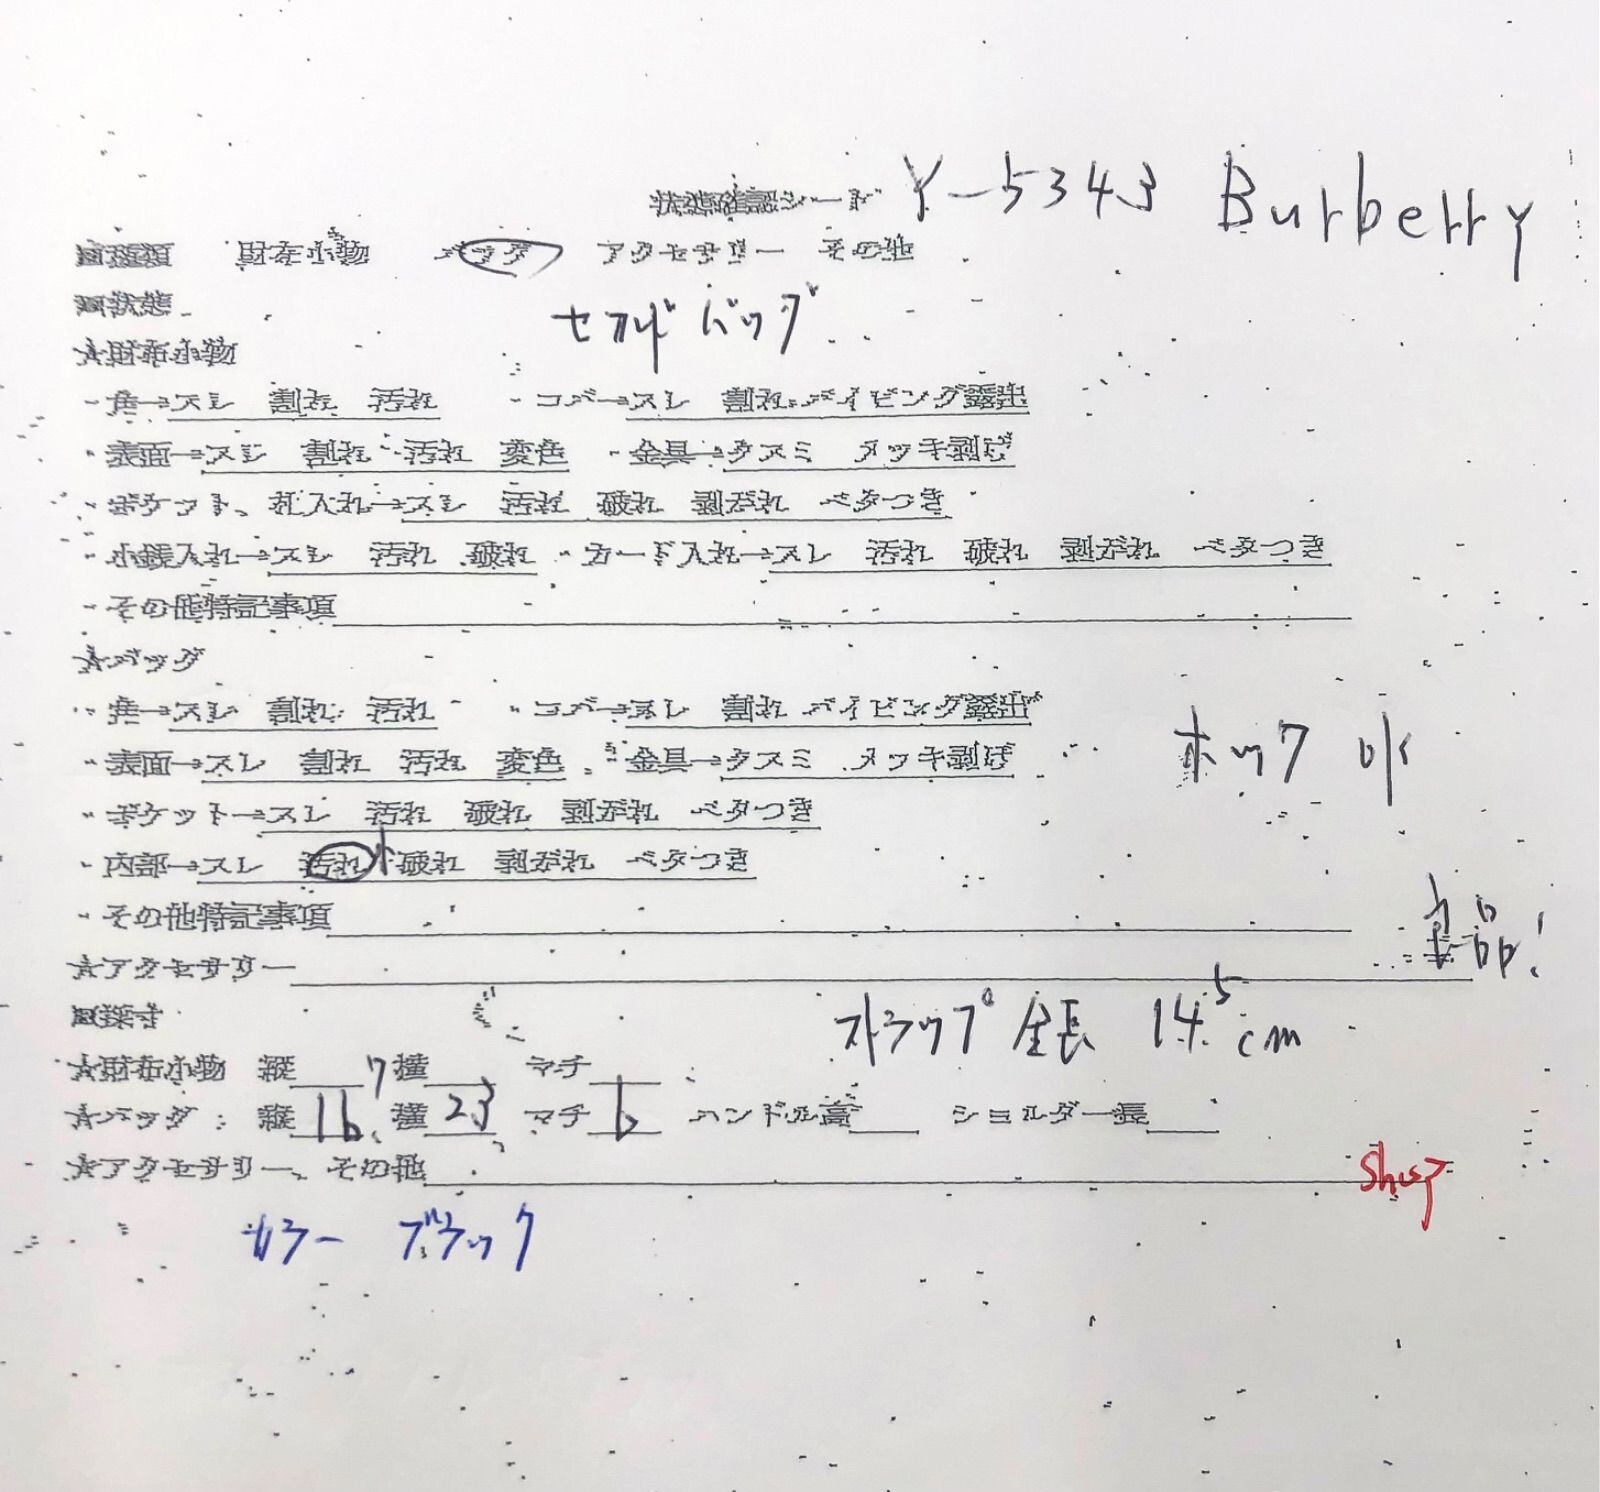 状態確認シート Y-5343 Burberry
■種類 財布小物 バッグ アクセサリー その他
■状態
セカンドバッグ
★財布小物
・角→スレ 割れ 汚れ ・コバ→スレ 割れ パイピング露出
・表面→スレ 割れ 汚れ 変色 ・金具→クスミ メッキ剥げ
・ポケット、札入れ→スレ 汚れ 破れ 剥がれ ベタつき
・小銭入れ→スレ 汚れ 破れ ・カード入れ→スレ 汚れ 破れ 剥がれ ベタつき
・その他特記事項
★バッグ
・角→スレ 割れ 汚れ ・コバ→スレ 割れ パイピング露出
・表面→スレ 割れ 汚れ 変色 ・金具→クスミ メッキ剥げ
ホック 小
・ポケット→スレ 汚れ 破れ 剥がれ ベタつき
・内部→スレ 汚れ 小 破れ 剥がれ ベタつき
・その他特記事項
美品!
★アクセサリー
■採寸
ストラップ全長 14.5cm
★財布小物 縦 横 マチ
★バッグ: 縦16、横23 マチ6 ハンドル高 ショルダー長
★アクセサリー、その他
カラー ブラック